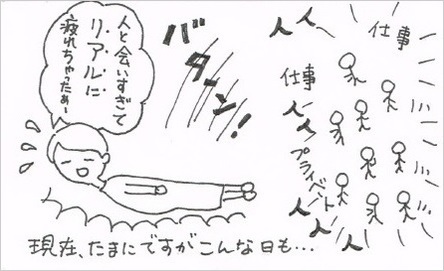 人と会いすぎて
リアルに
疲れちゃったぁー
バターン!
人
人
仕事
仕事
人
人
プライベート
人
人
人
現在、たまにですがこんな日も…